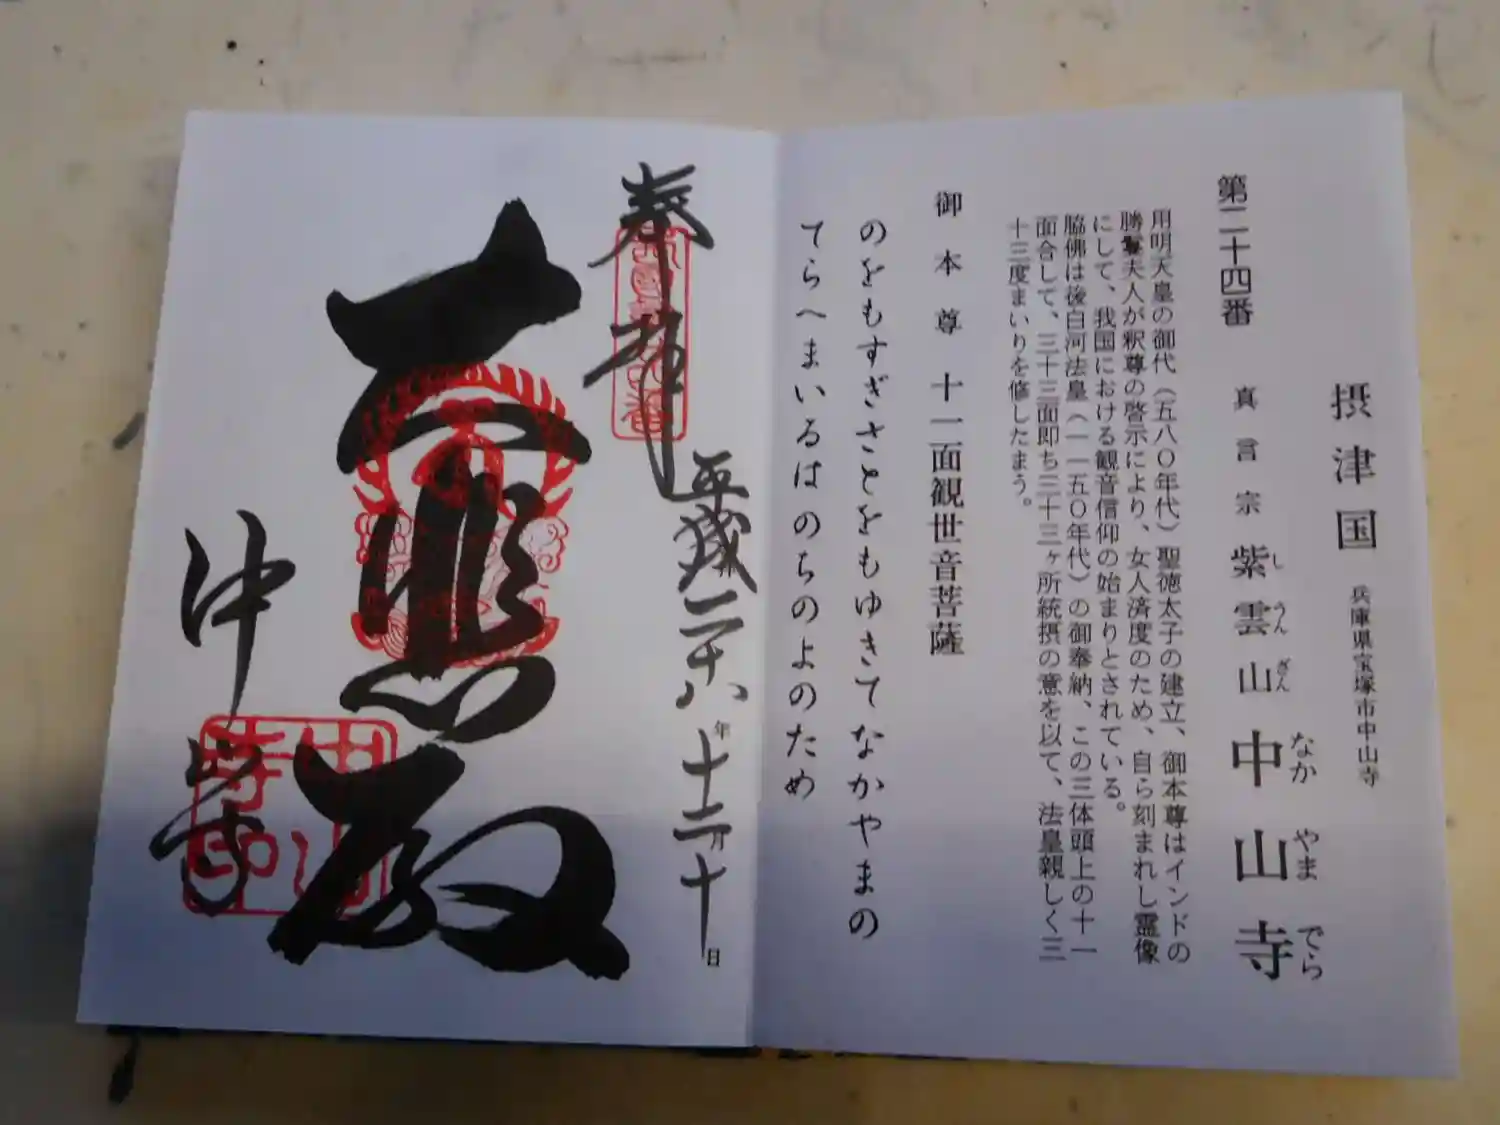 摂津国 兵庫県宝塚市中山寺
第二十四番 真言宗 紫雲山 中山寺
し うん ざん なか やま でら
用明天皇の御代（五八〇年代）聖徳太子の建立、御本尊はインドの
勝鬘夫人が釈尊の啓示により、女人済度のため、自ら刻まれし霊像
にして、我国における観音信仰の始まりとされている。
脇佛は後白河法皇（一一五〇年代）の御奉納、この三体頭上の十一
面合して、三十三面即ち三十三ヶ所統摂の意を以て、法皇親しく三
十三度まいりを修したまう。
御本尊 十一面観世音菩薩
のをもすぎさとをもゆきてなかやまの
てらへまいるはのちのよのため
奉拝
平成二十六年十二月十日
大悲殿
中山寺
中山寺印